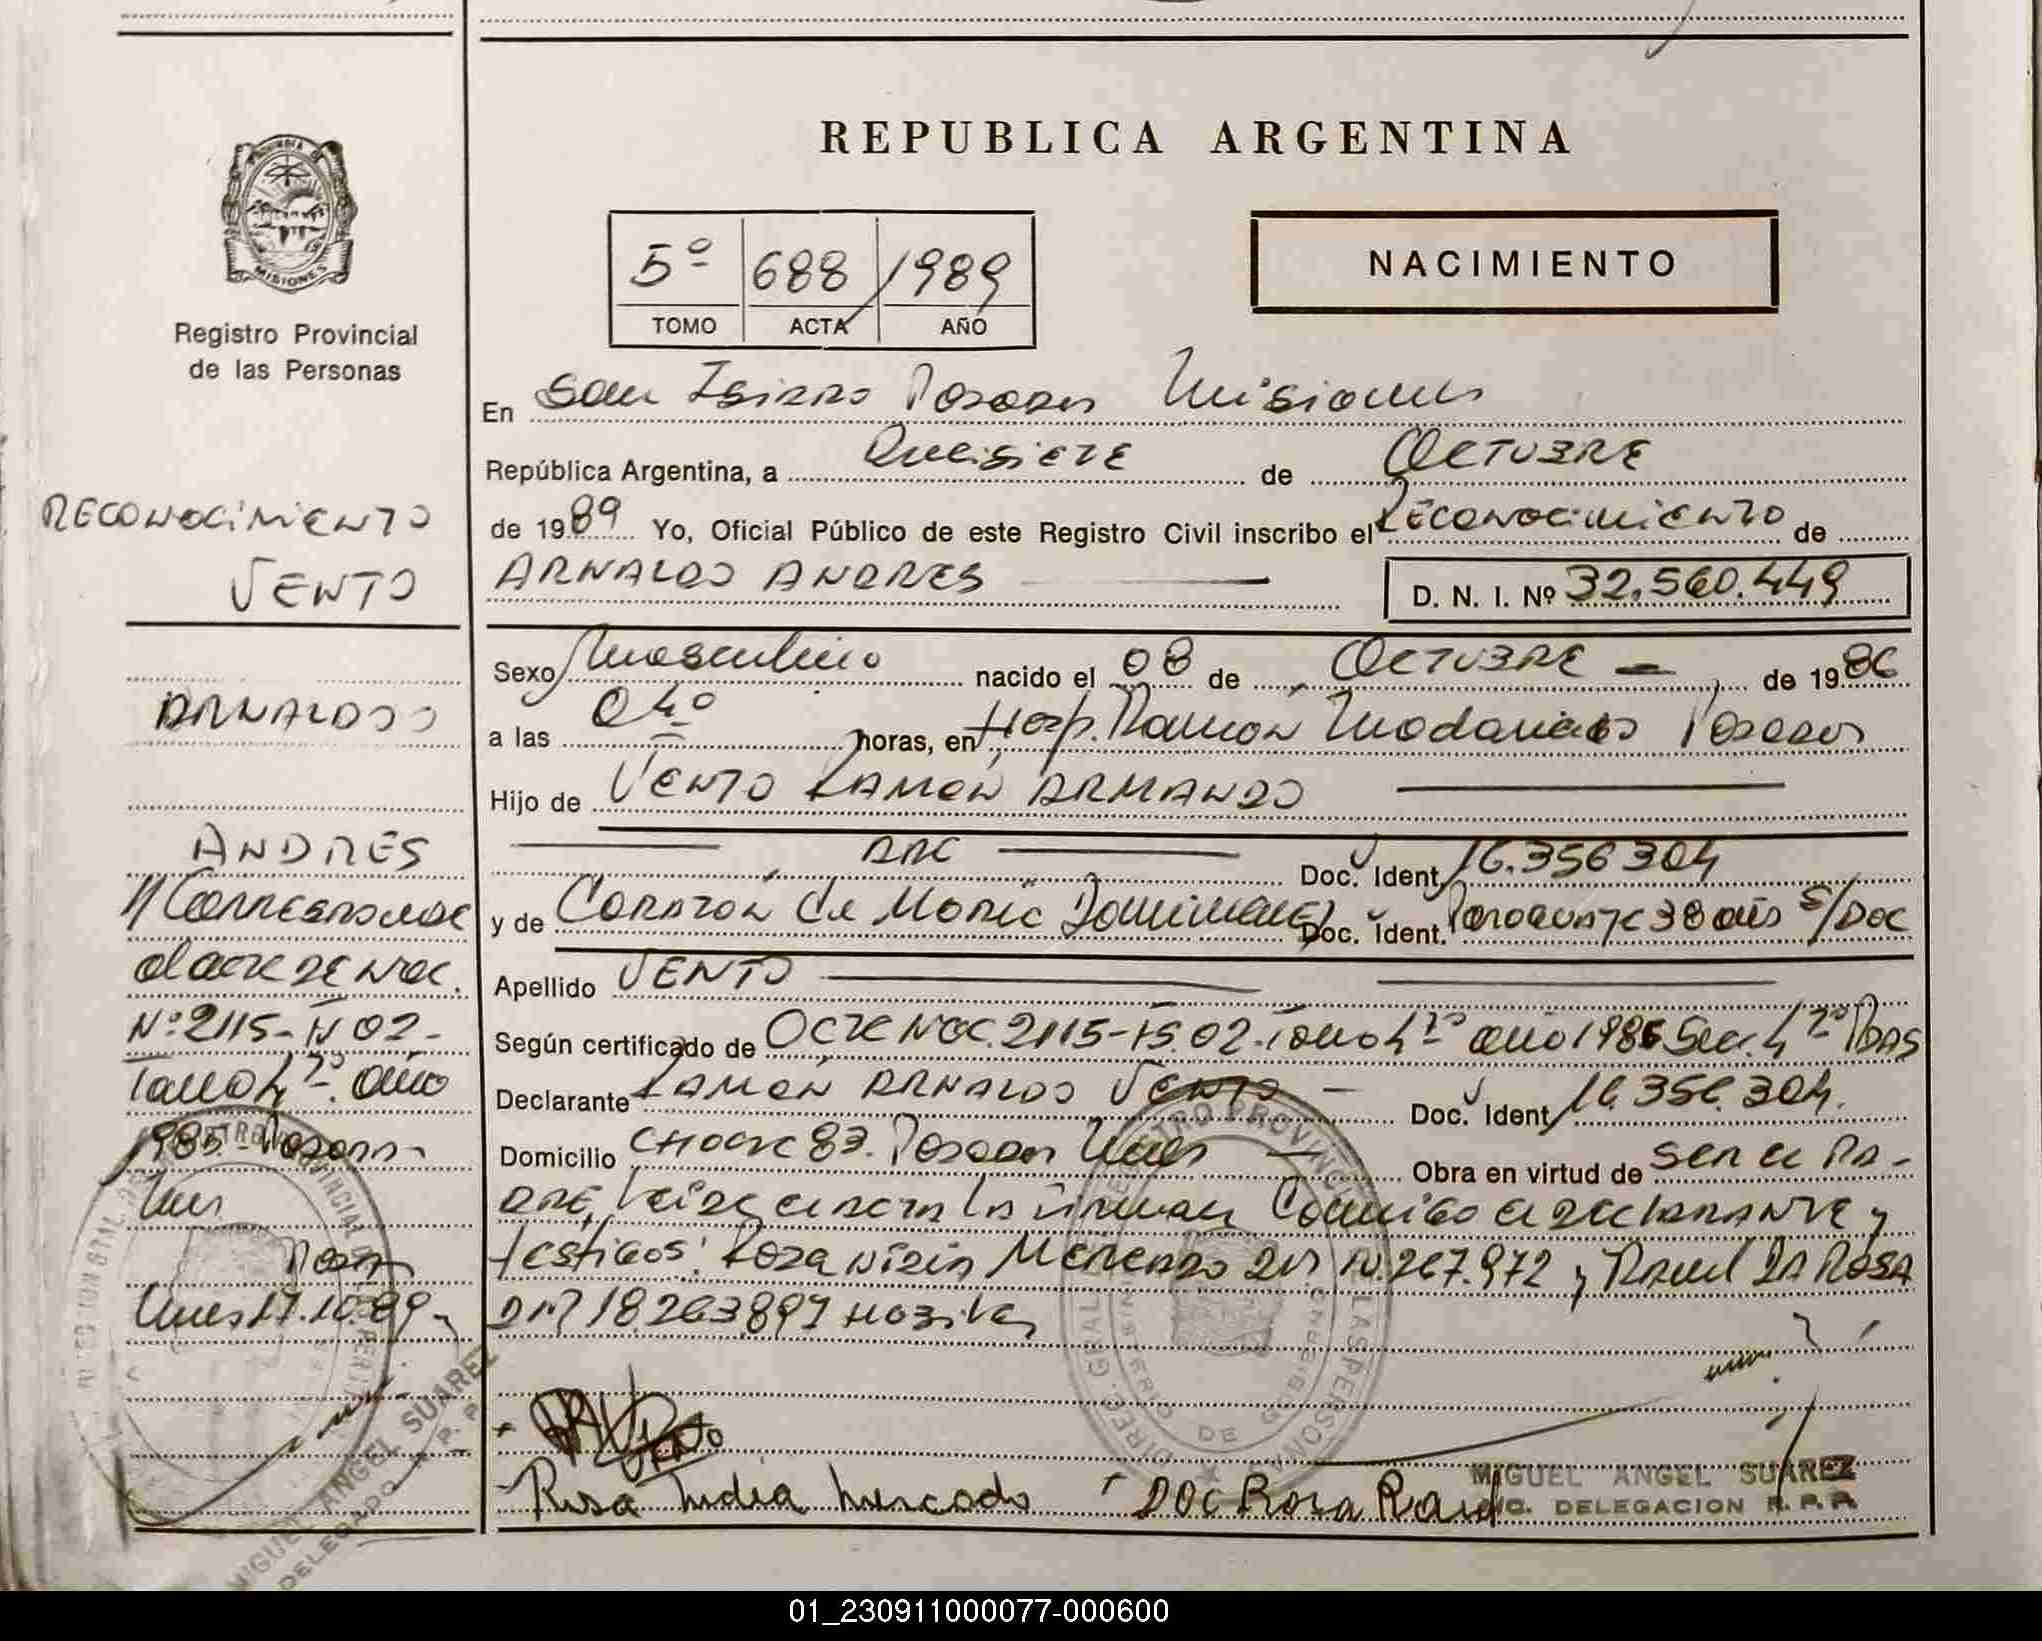 REPUBLICA ARGENTINA
PROVINCIA DE
MISIONES
Registro Provincial
de las Personas
NACIMIENTO
5º 688 / 1989
TOMO ACTA AÑO
RECONOCIMIENTO
VENTO
ARNALDO
ANDRES
N Corresponde
al acta de Nac.
Nº 2115-Fº 02-
Tomo 4º. año
1985-Posadas-
Mnes
Posadas
Mnes 17.10.89-
En San Isidro Posadas Misiones
República Argentina, a Diecisiete de OCTUBRE
de 1989 Yo, Oficial Público de este Registro Civil inscribo el Reconocimiento de
ARNALDO ANDRES D. N. I. Nº 32.560.449
Sexo Masculino nacido el 08 de OCTUBRE de 1986
a las 04º horas, en Hosp. Ramón Madariaga Posadas
Hijo de VENTO RAMON ARMANDO
ARG Doc. Ident. 16.356 304
y de Corazón de María Dominguez Doc. Ident. Paraguaya 38 años S/DOC
Apellido VENTO
Según certificado de ACTA NAC. 2115-Fº. 02-Tomo 4º año 1986 Sec. 4º PDAS
Declarante RAMÓN ARNALDO VENTO - Doc. Ident. 16.356.304.
Domicilio CHACRA 83. Posadas Mnes Obra en virtud de ser el PA-
DRE, Leída el acta la firman Conmigo el declarante y
testigos: Rosa Mercado DNI 10.267.972 y Raul DA ROSA
DNI 18.263.899
VENTO
Rosa India Mercado DOC Rosa Raul
MIGUEL ANGEL SUAREZ
DELEGACION R. P. P.
MIGUEL ANGEL SUAREZ
DELEGADO R. P. P.
01_230911000077-000600